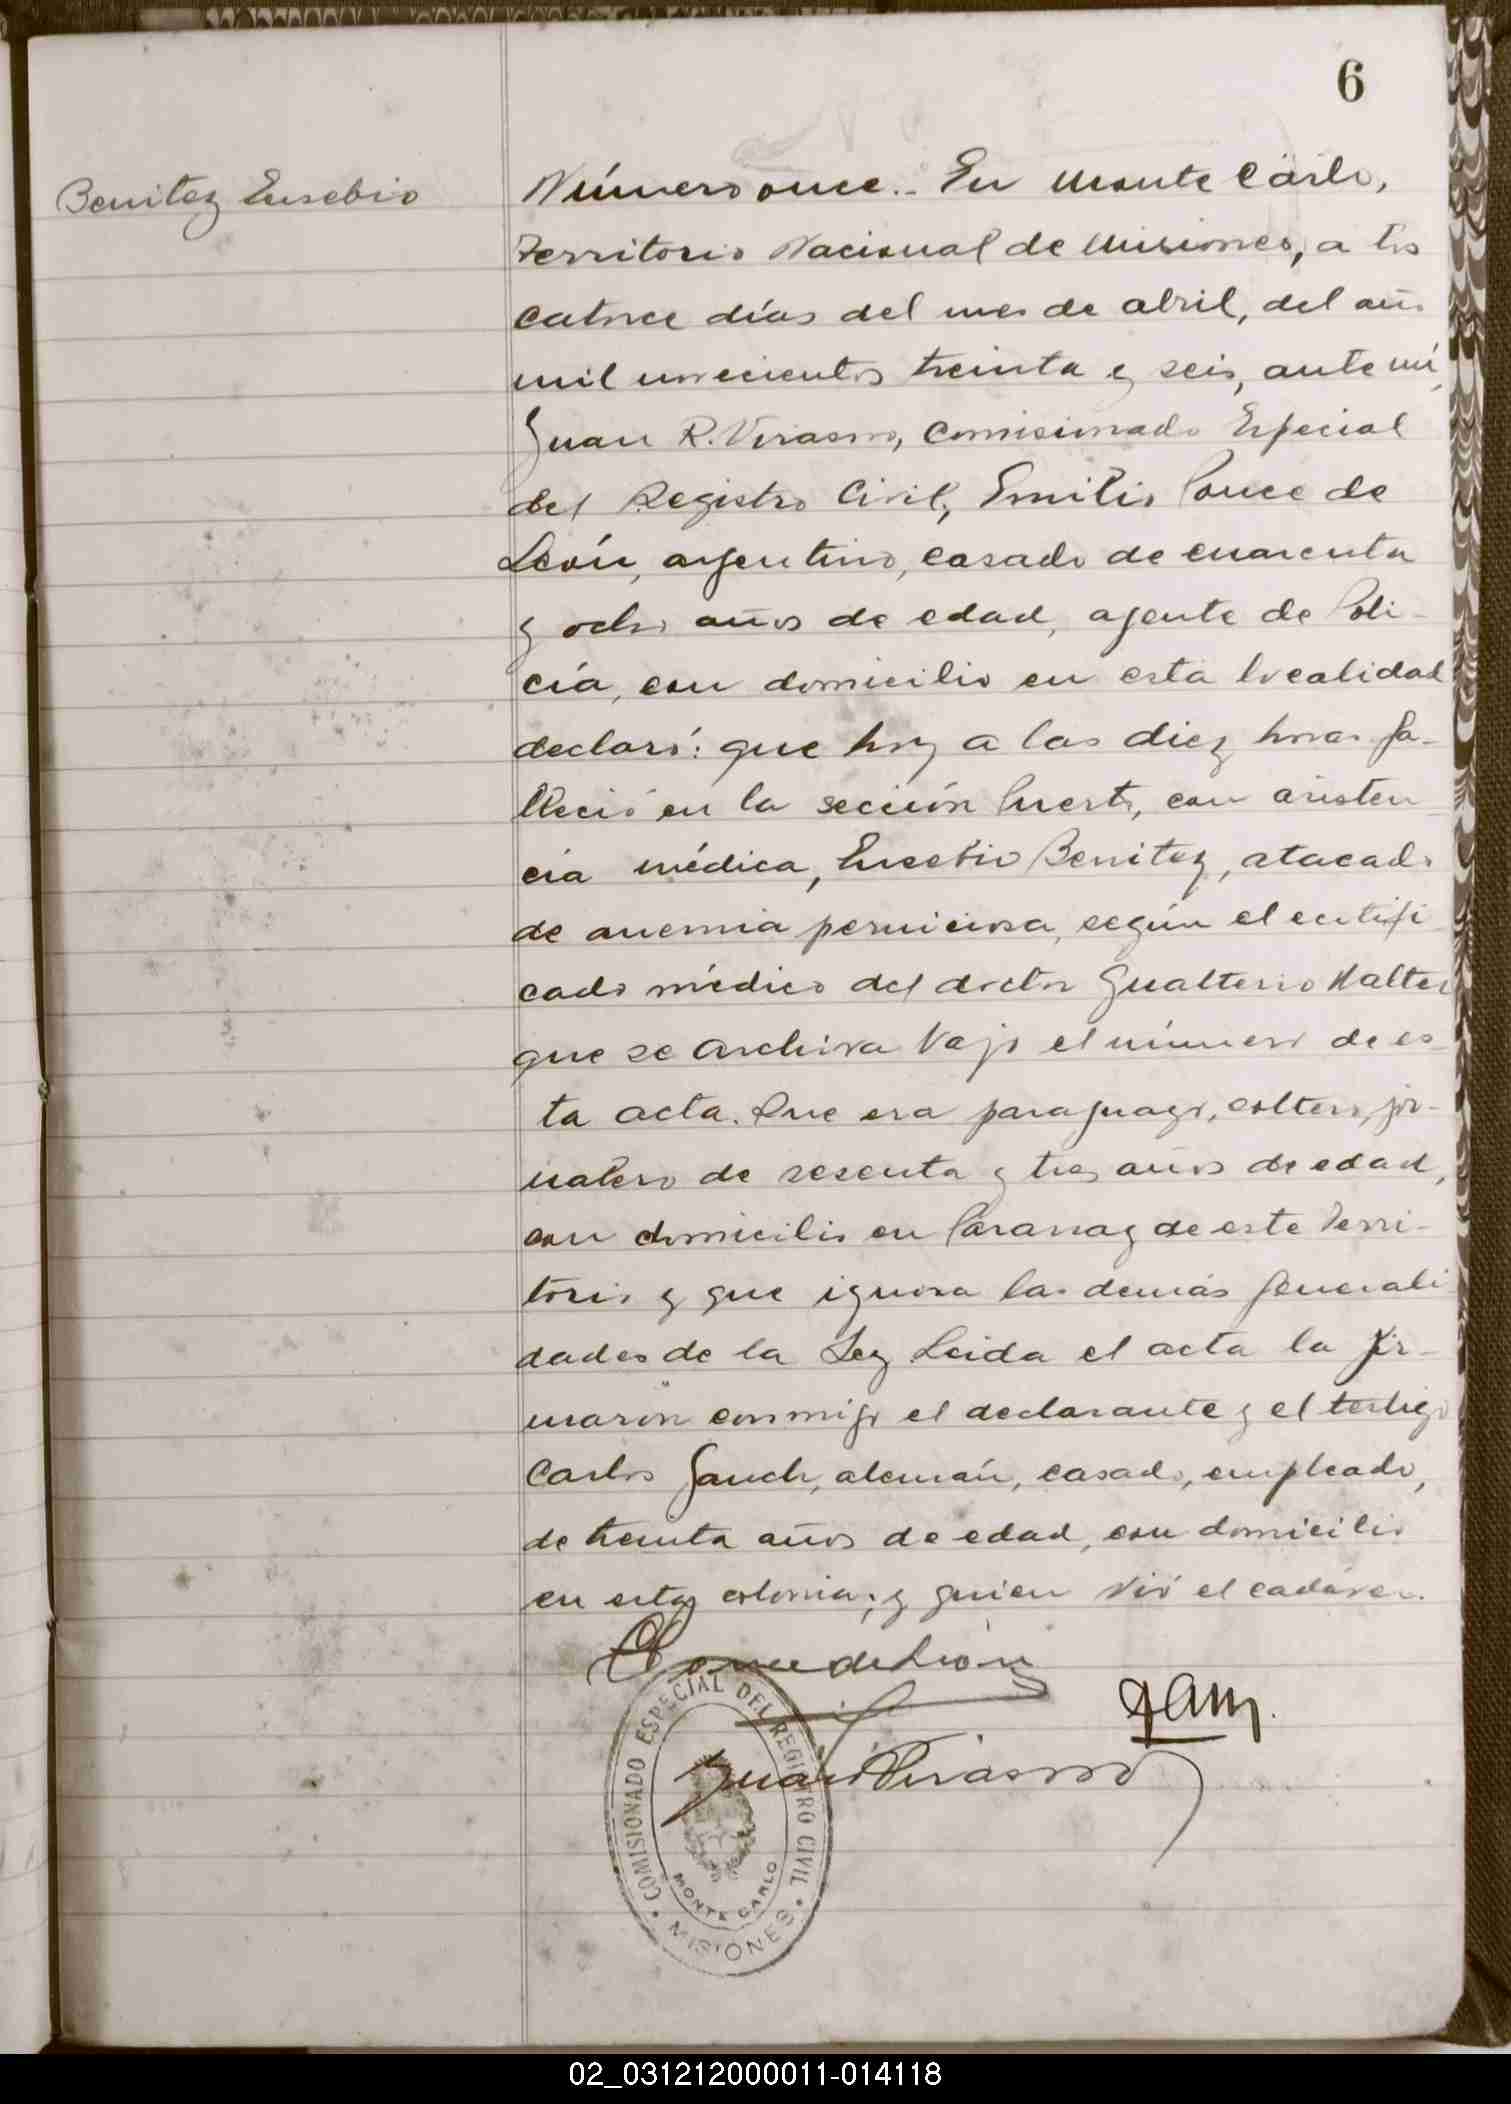 6
Benitez Eusebio
Número once.- En Monte Carlo,
Territorio Nacional de Misiones, a los
catorce días del mes de abril, del año
mil novecientos treinta y seis, ante mí,
Juan R. Virasoro, Comisionado Especial
del Registro Civil, Emilio Ponce de
León, argentino, casado de cuarenta
y ocho años de edad, agente de Poli-
cía, con domicilio en esta localidad
declaró: que hoy a las diez horas fa-
lleció en la sección Puerto, con asisten-
cia médica, Eusebio Benitez, atacado
de anemia perniciosa, según el certifi
cado médico del doctor Gualterio Walter
que se archiva bajo el número de es-
ta acta. Que era paraguayo, soltero, jor-
nalero de sesenta y tres años de edad,
con domicilio en Caraguay de este Terri-
torio y que ignora las demás generali
dades de la Ley. Leida el acta la fir-
maron conmigo el declarante y el testigo
Carlos Jauch, alemán, casado, empleado,
de treinta años de edad, con domicilio
en esta colonia; y quien vió el cadáver.
E Ponce de León
Juan R Virasoro
COMISIONADO ESPECIAL DEL REGISTRO CIVIL
MONTE CARLO
MISIONES
02_031212000011-014118